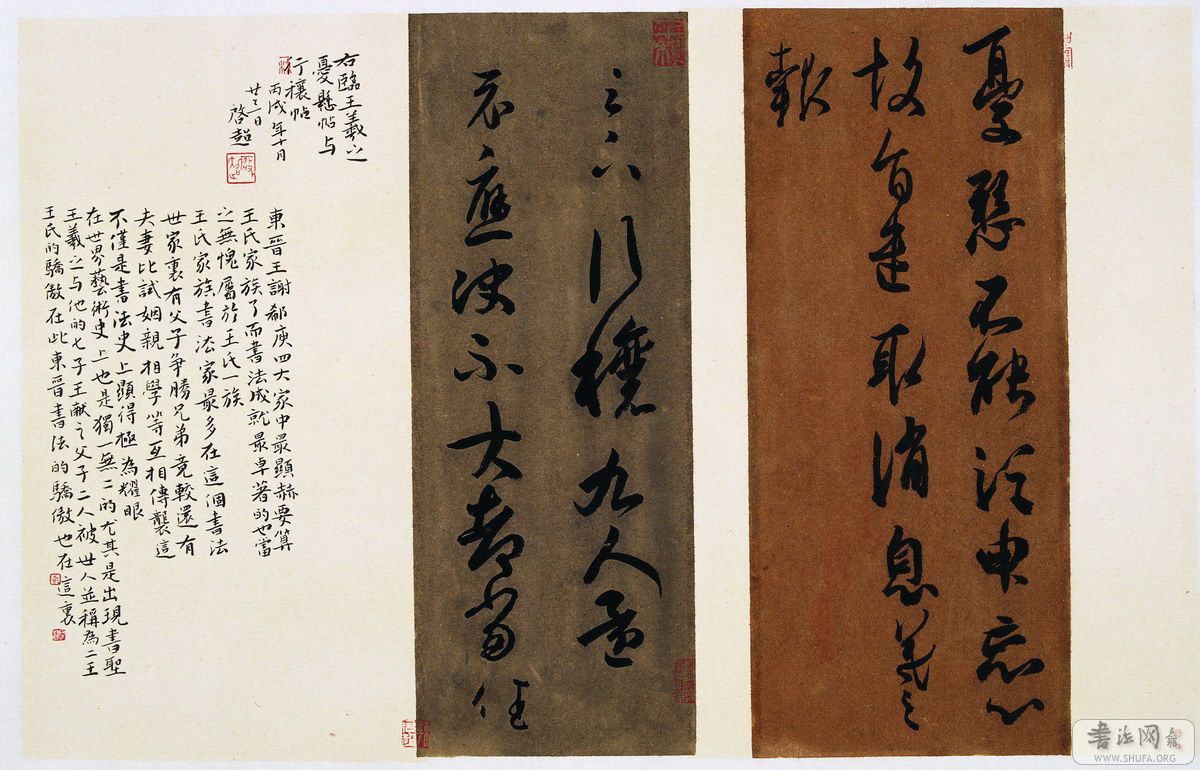 憂懸不能須臾忘心
故旨遣取消息羲之
報
足下行穰九人還
示應決不大都當佳
右臨王羲之
憂懸帖与
行穰帖
丙戌年十月
廿三日
啓超
東晉王謝郗庾四大家中最顯赫要算
王氏家族了而書法成就最卓著的也當
之無愧屬於王氏一族
王氏家族書法家最多在這個書法
世家裏有父子争勝兄弟竞較還有
夫妻比試姻親相學等互相傳襲這
不僅是書法史上顯得極為耀眼
在世界藝術史上也是獨一無二的尤其是出現書聖
王羲之与他的七子王献之父子二人被世人並稱為二王
王氏的驕傲在此東晉書法的驕傲也在這裏
書法网
WWW.SHUFA.ORG